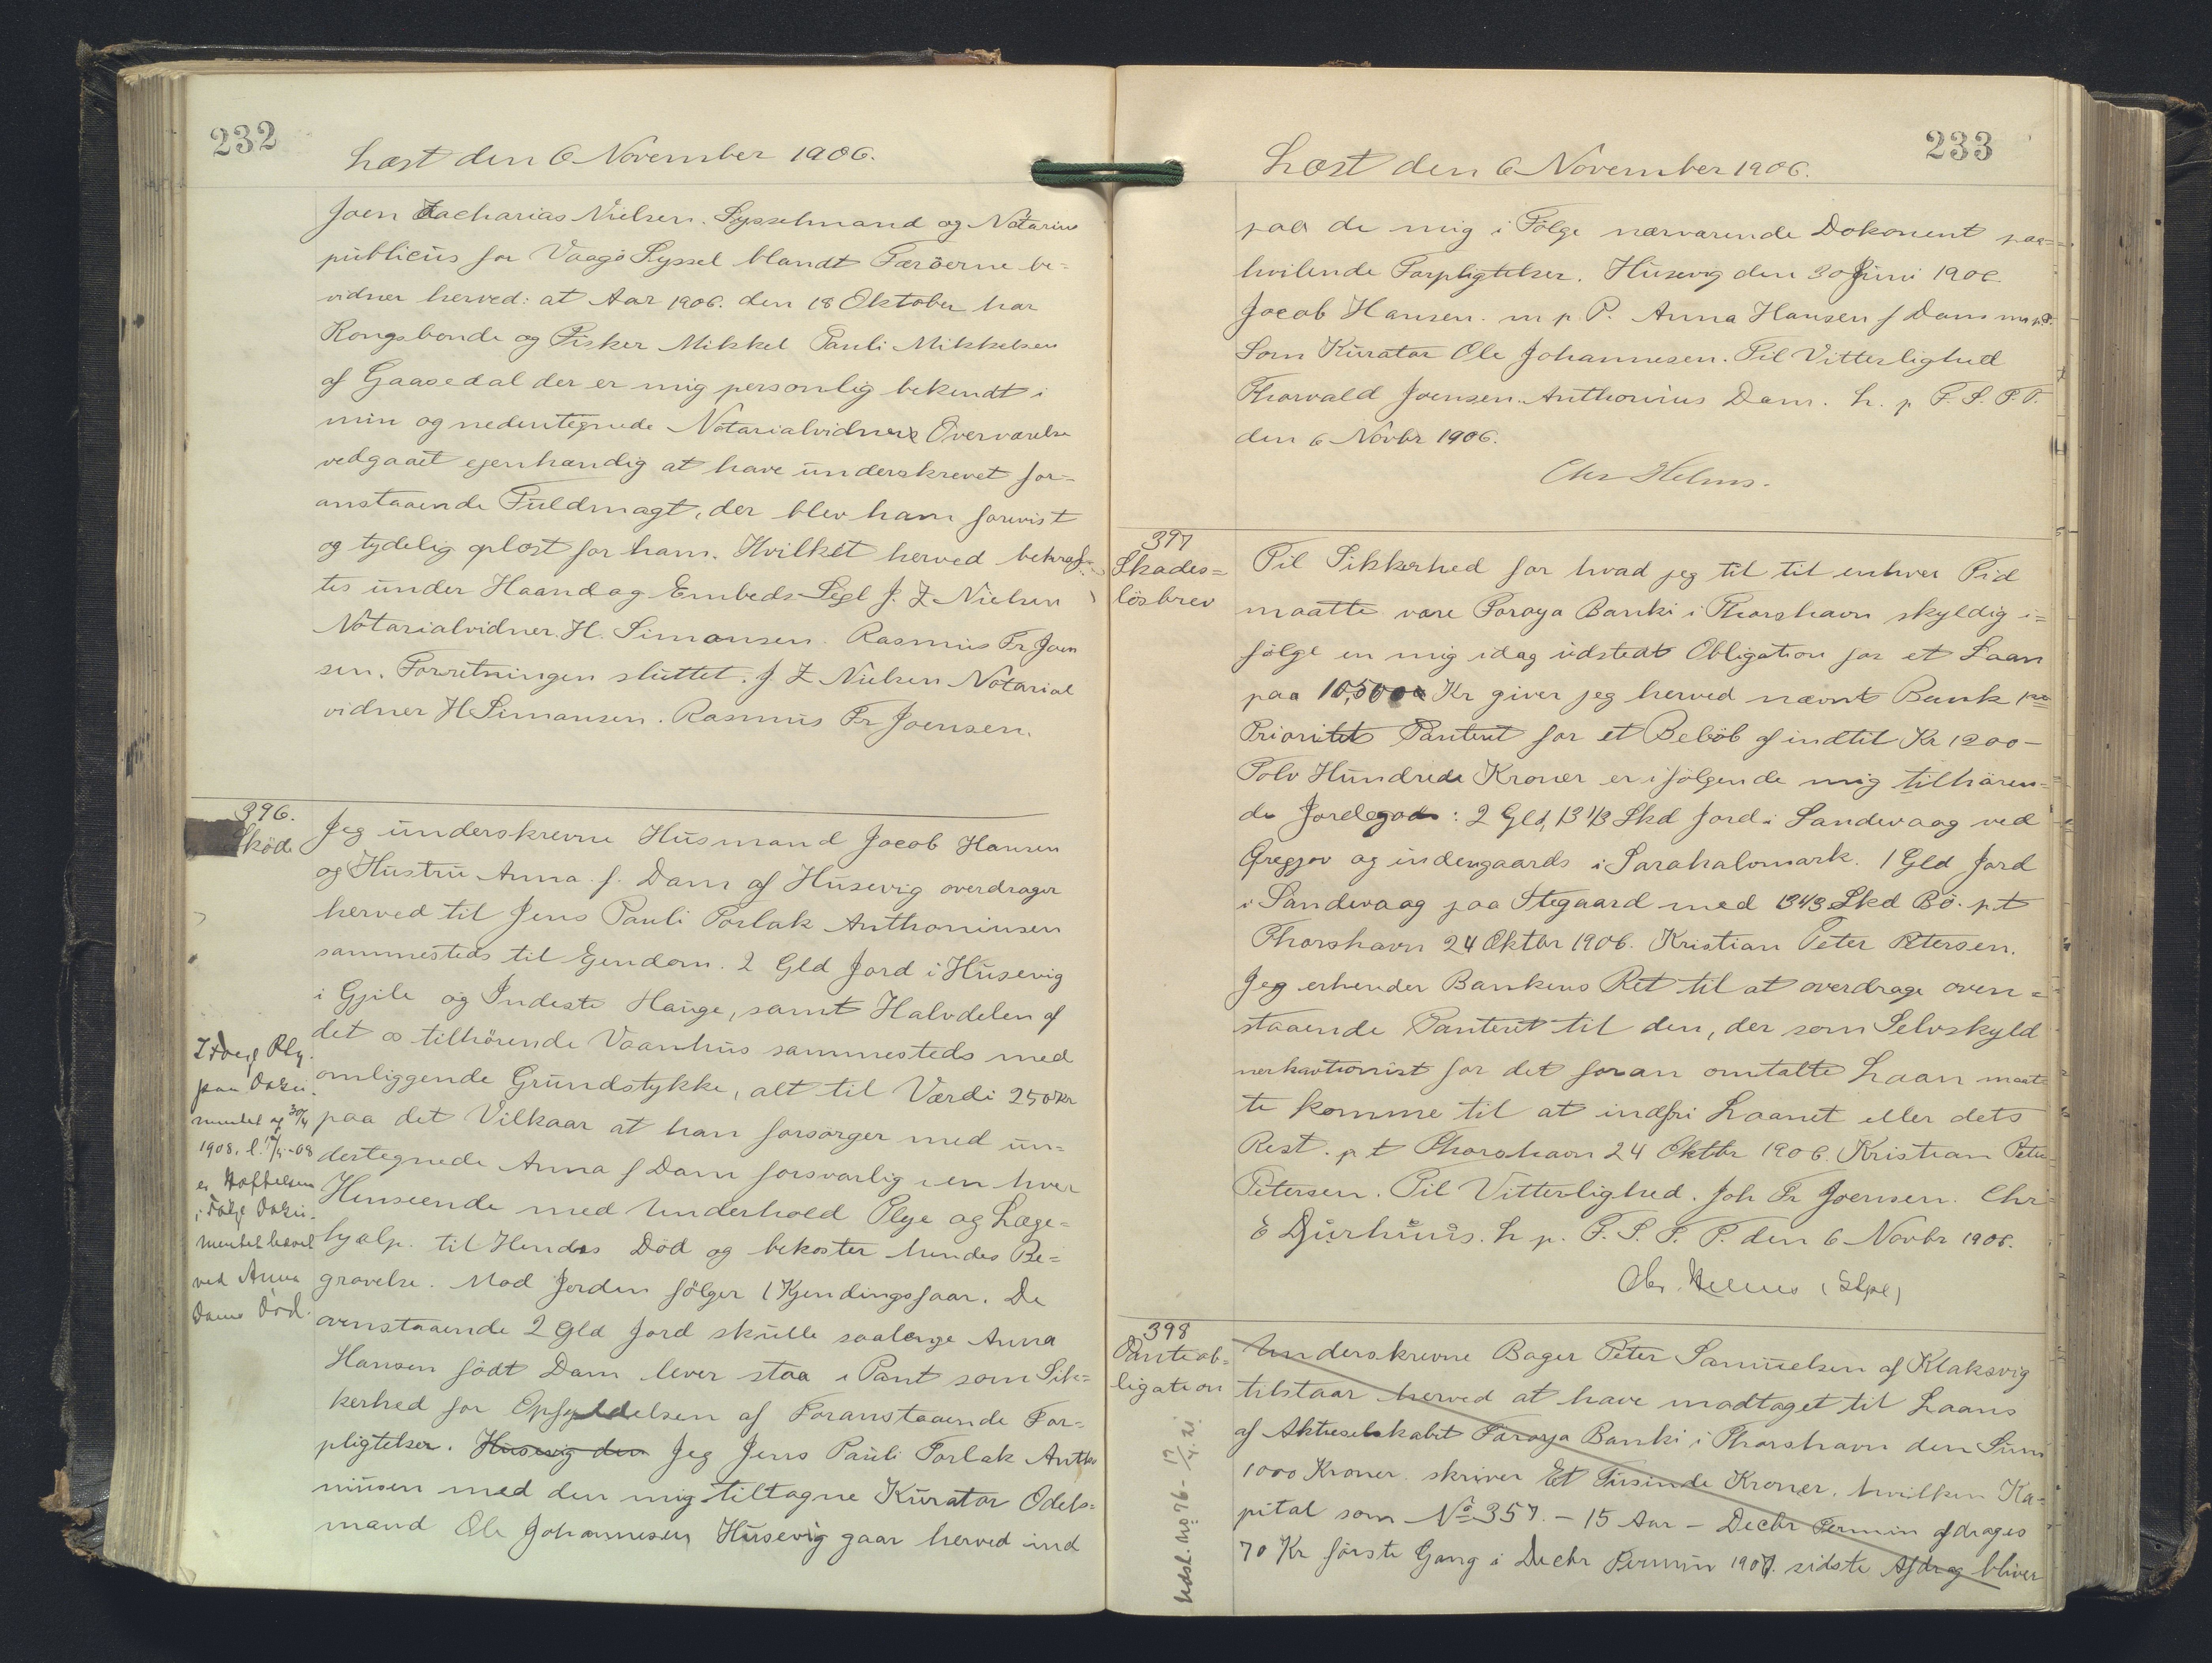 232
Læst den 6 November 1906.
Joen Zacharias Nielsen. Sysselmand og Notarius
publicus for Vaagö Syssel blandt Færöerne be=
vidner herved: at Aar 1906. den 18 Oktober har
Kongsbonde og Fisker Mikkel Pauli Mikkelsen
af Gaasedal der er mig personlig bekendt i
min og nedentegnede Notarialvidners Overværelse
vedgaaet egenhændig at have underskrevet for=
anstaaende Fuldmagt, der blev ham forevist
og tydelig oplæst for ham. Hvilket herved bekræf=
tes under Haand og Embeds-Segl J. Z Nielsen
Notarialvidner. H. Simonsen. Rasmus Fr Joen
sen. Forretningen sluttet. J Z Nielsen Notarial
vidner H Simonsen. Rasmus Fr Joensen.
396.
Sköde
Jeg underskrevne Husmand Jacob Hansen
og Hustru Anna f. Dam af Husevig overdrager
herved til Jens Pauli Torlak Anthoniusen
sammesteds til Ejendom. 2 Gld Jord i Husevig
i Gjile og Indeste Hauge, samt Halvdelen af
det os tilhörende Vaanhus sammesteds med
omliggende Grundstykke, alt til Værdi 250 Kr
paa det Vilkaar at han forsörger med un=
dertegnede Anna f Dam forsvarlig i en hver
Henseende med Underhold Pleje og Læge=
hjælp. til Hendes Död og bekoster hendes Be=
gravelse. Med Jorden fölger 1 Kjendingsfaar. De
ovenstaaende 2 Gld Jord skulle saalænge Anna
Hansen födt Dam lever staa i Pant som Sik=
kerhed for Opfyldelsen af Foranstaaende For=
pligtelser. Husevig den Jeg Jens Pauli Torlak Antho
niusen med den mig tiltagne Kurator Odels=
mand Ole Johannesen Husevig gaar herved ind
Ifölge Pag.
paa Doku
mentet af 30/4
1908. l. 12/5-08
er Hæftelsen
i Fölge Doku-
mentet hævet
ved Anna
Dams Död.
233
Læst den 6 November 1906.
paa de mig i Fölge nærværende Dokoment paa=
hvilende Forpligtelser. Husevig den 30 Juni 1906
Jacob Hansen. m p P. Anna Hansen f Dam m p P.
Som Kurator Ole Johannesen. Til Vitterlighed
Thorvald Joensen. Anthonius Dam. L. p F. S. P. T.
den 6 Novbr 1906.
Chr Helms.
397
Skades=
lösbrev
Til Sikkerhed for hvad jeg til til enhver Tid
maatte være Foroya Banki i Thorshavn skyldig i=
fölge en mig idag udstedt Obligation for et Laan
paa 10,500 Kr giver jeg herved nævnt Bank 1ste
Prioritets Panteret for et Belöb af indtil Kr 1200-
Tolv Hundrede Kroner er i fölgende mig tilhören=
de Jordegods: 2 Gld, 13 1/3 Skd Jord i Sandevaag ved
Gregjov og indengaards i Sarahalvmark. 1 Gld Jord
i Sandevaag paa Stegaard med 13 1/3 Skd Bö. p t
Thorshavn 24 Oktbr 1906. Kristian Peter Petersen.
Jeg erkender Bankens Ret til at overdrage oven=
staaende Panteret til den, der som Selvskyld
nerkautionist for det foran omtalte Laan maat
te komme til at indfri Laanet eller dets
Rest. p t Thorshavn 24 Oktbr 1906. Kristian Peter
Petersen. Til Vitterlighed. Joh Fr Joensen. Chr
E Djurhuus. L p. F. S. T. P. den 6 Novbr 1906.
Chr. Helms
398
Panteob=
ligation
Underskrevne Bager Peter Samuelsen af Klaksvig
tilstaar herved at have modtaget til Laans
af Aktieselskabet Foroya Banki i Thorshavn den Sum
1000 Kroner. skriver Et Tusinde Kroner, hvilken Ka=
pital som No 357. - 15 Aar - Decbr Termin afdrages
70 Kr förste Gang i Decbr Termin 1907. sidste Afdrag bliver
Udsl. No 76 - 17/4.21.